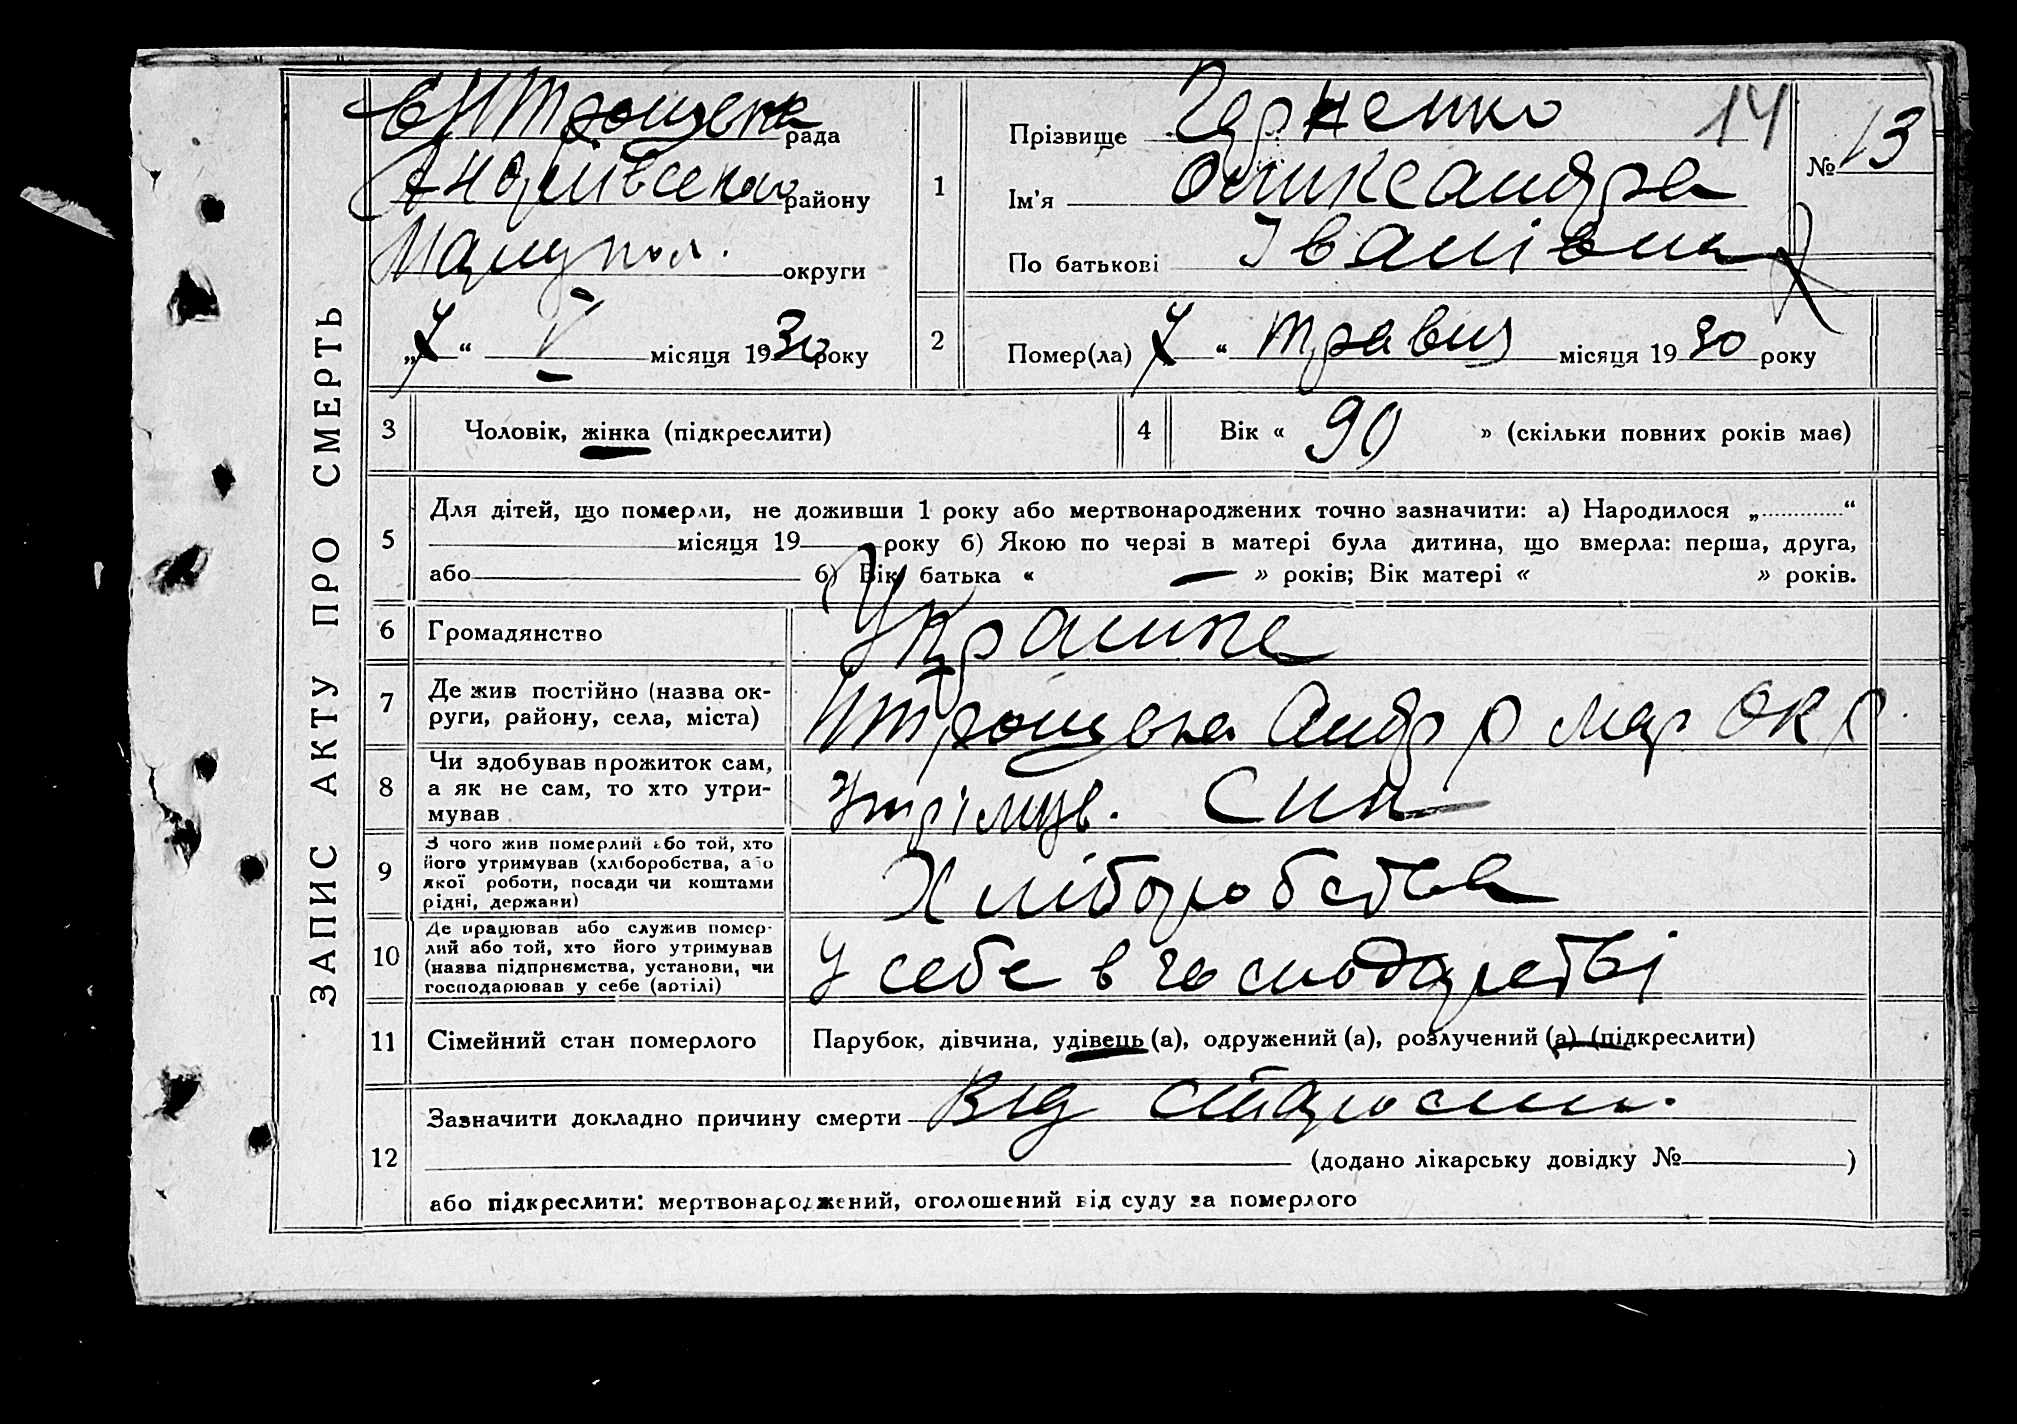 ЗАПИС АКТУ ПРО СМЕРТЬ
рада
Андріївського району
Маріупол. округи
„7“ V місяця 1930 року
1
Прізвище
14
№ 13
Ім'я Олександра
По батькові Іванівна
2
Помер(ла) 7 “ травня місяця 1930 року
3 Чоловік, жінка (підкреслити)
4 Вік « 90 » (скільки повних років має)
5 Для дітей, що померли, не доживши 1 року або мертвонароджених точно зазначити: а) Народилося „ “
місяця 19 року б) Якою по черзі в матері була дитина, що вмерла: перша, друга,
або б) Вік батька « — » років; Вік матері « » років.
6 Громадянство Украінка
7 Де жив постійно (назва ок-
руги, району, села, міста)
Андр р Мар окр
8 Чи здобував прожиток сам,
а як не сам, то хто утри-
мував
Син
9 З чого жив померлий або той, хто
його утримував (хліборобства, або
якої роботи, посади чи коштами
рідні, держави)
Хліборобства
10 Де працював або служив помер-
лий або той, хто його утримував
(назва підприємства, установи, чи
господарював у себе (артілі)
У себе в господарстві
11 Сімейний стан померлого Парубок, дівчина, удівець (а), одружений (а), розлучений (а) (підкреслити)
12
Зазначити докладно причину смерти Від старости.
(додано лікарську довідку № )
або підкреслити: мертвонароджений, оголошений від суду за померлого